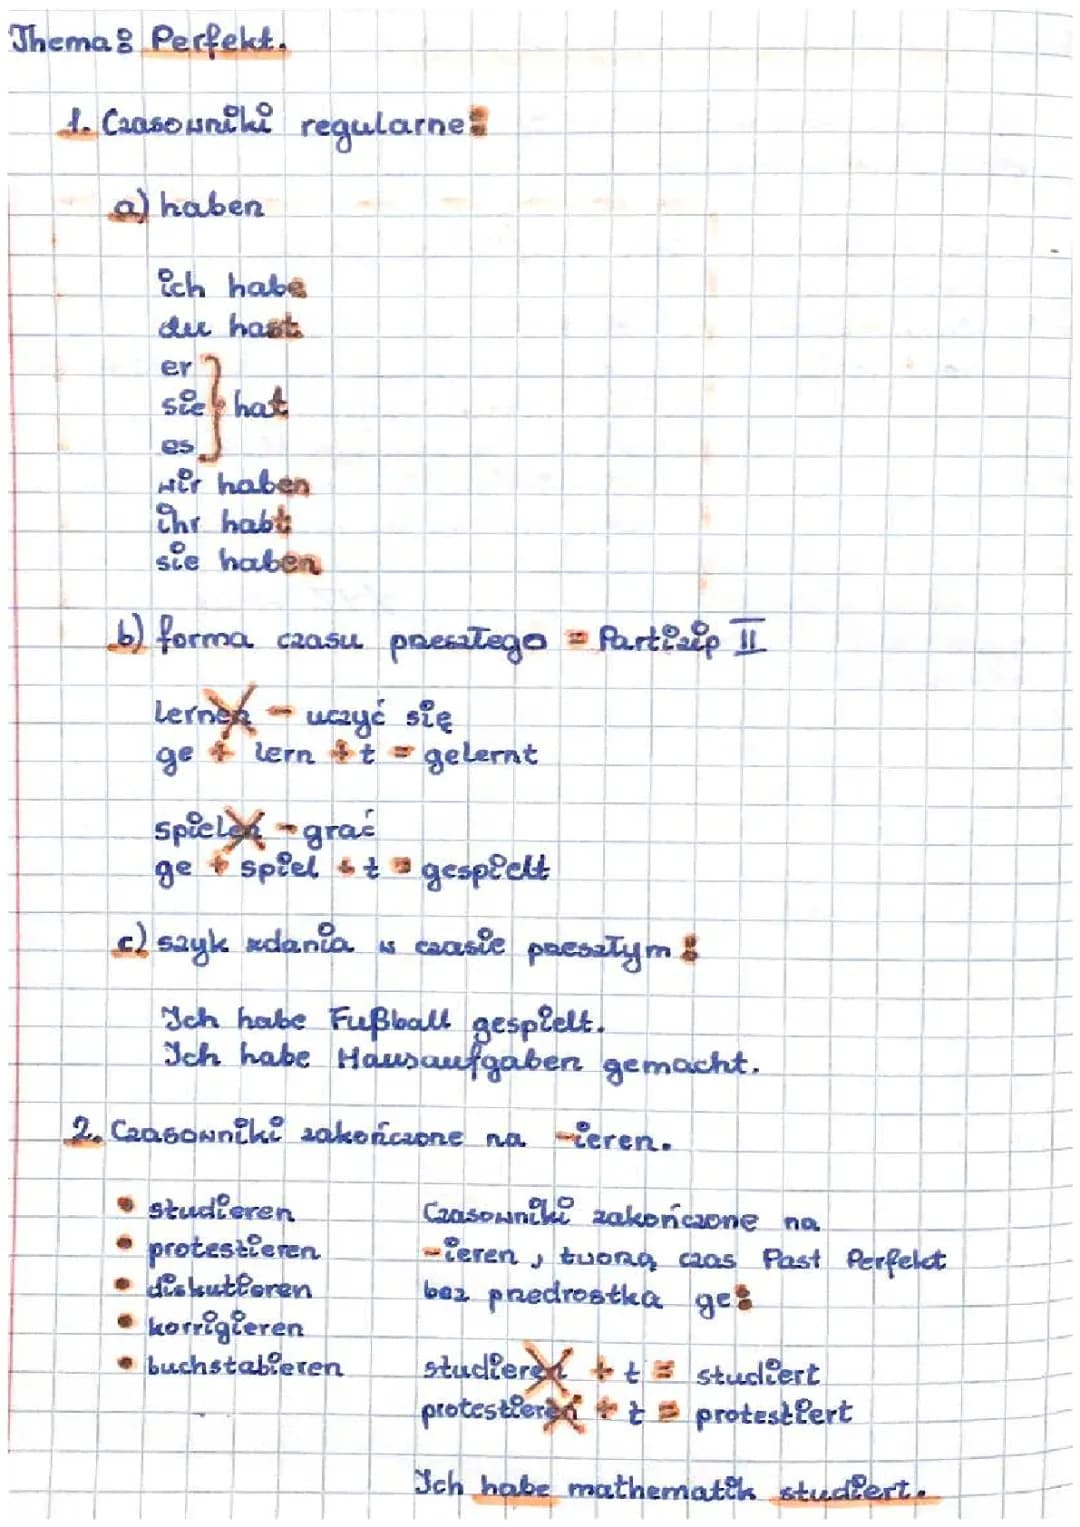 Thema: Perfekt.
1. Czasowniki regularne:
a) haben
ich habe
du hast
er
sie } hat
es
wir haben
ihr habt
sie haben
b) forma czasu przeszłego = Partizip II
lernen - uczyć się
ge + lern + t = gelernt
spielen - grać
ge + spiel + t = gespielt
c) szyk zdania w czasie przeszłym:
Ich habe Fußball gespielt.
Ich habe Hausaufgaben gemacht.
2. Czasowniki zakończone na -ieren.
• studieren
• protestieren
• diskutieren
• korrigieren
• buchstabieren
Czasowniki zakończone na
-ieren, tworzą czas Past Perfekt
bez przedrostka ge:
studieren + t = studiert
protestieren + t = protestiert
Ich habe mathematik studiert.